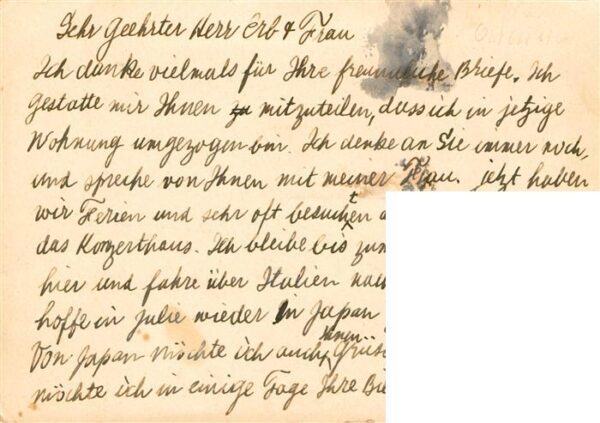 Sehr Geehrter Herr Erb & Frau
Ich danke vielmals für Ihre freundliche Briefe. Ich
gestatte mir Ihnen mitzuteilen, dass ich in jetzige
Wohnung umgezogen bin. Ich denke an Sie immer noch,
und spreche von Ihnen mit meiner Frau. jetzt haben
wir Ferien und sehr oft besuchten
das Konzerthaus. Ich bleibe bis zum
hier und fahre über Italien nach
hoffe in Julie wieder in Japan
Von Japan möchte ich auch Ihnen
möchte ich in einige Tage Ihre